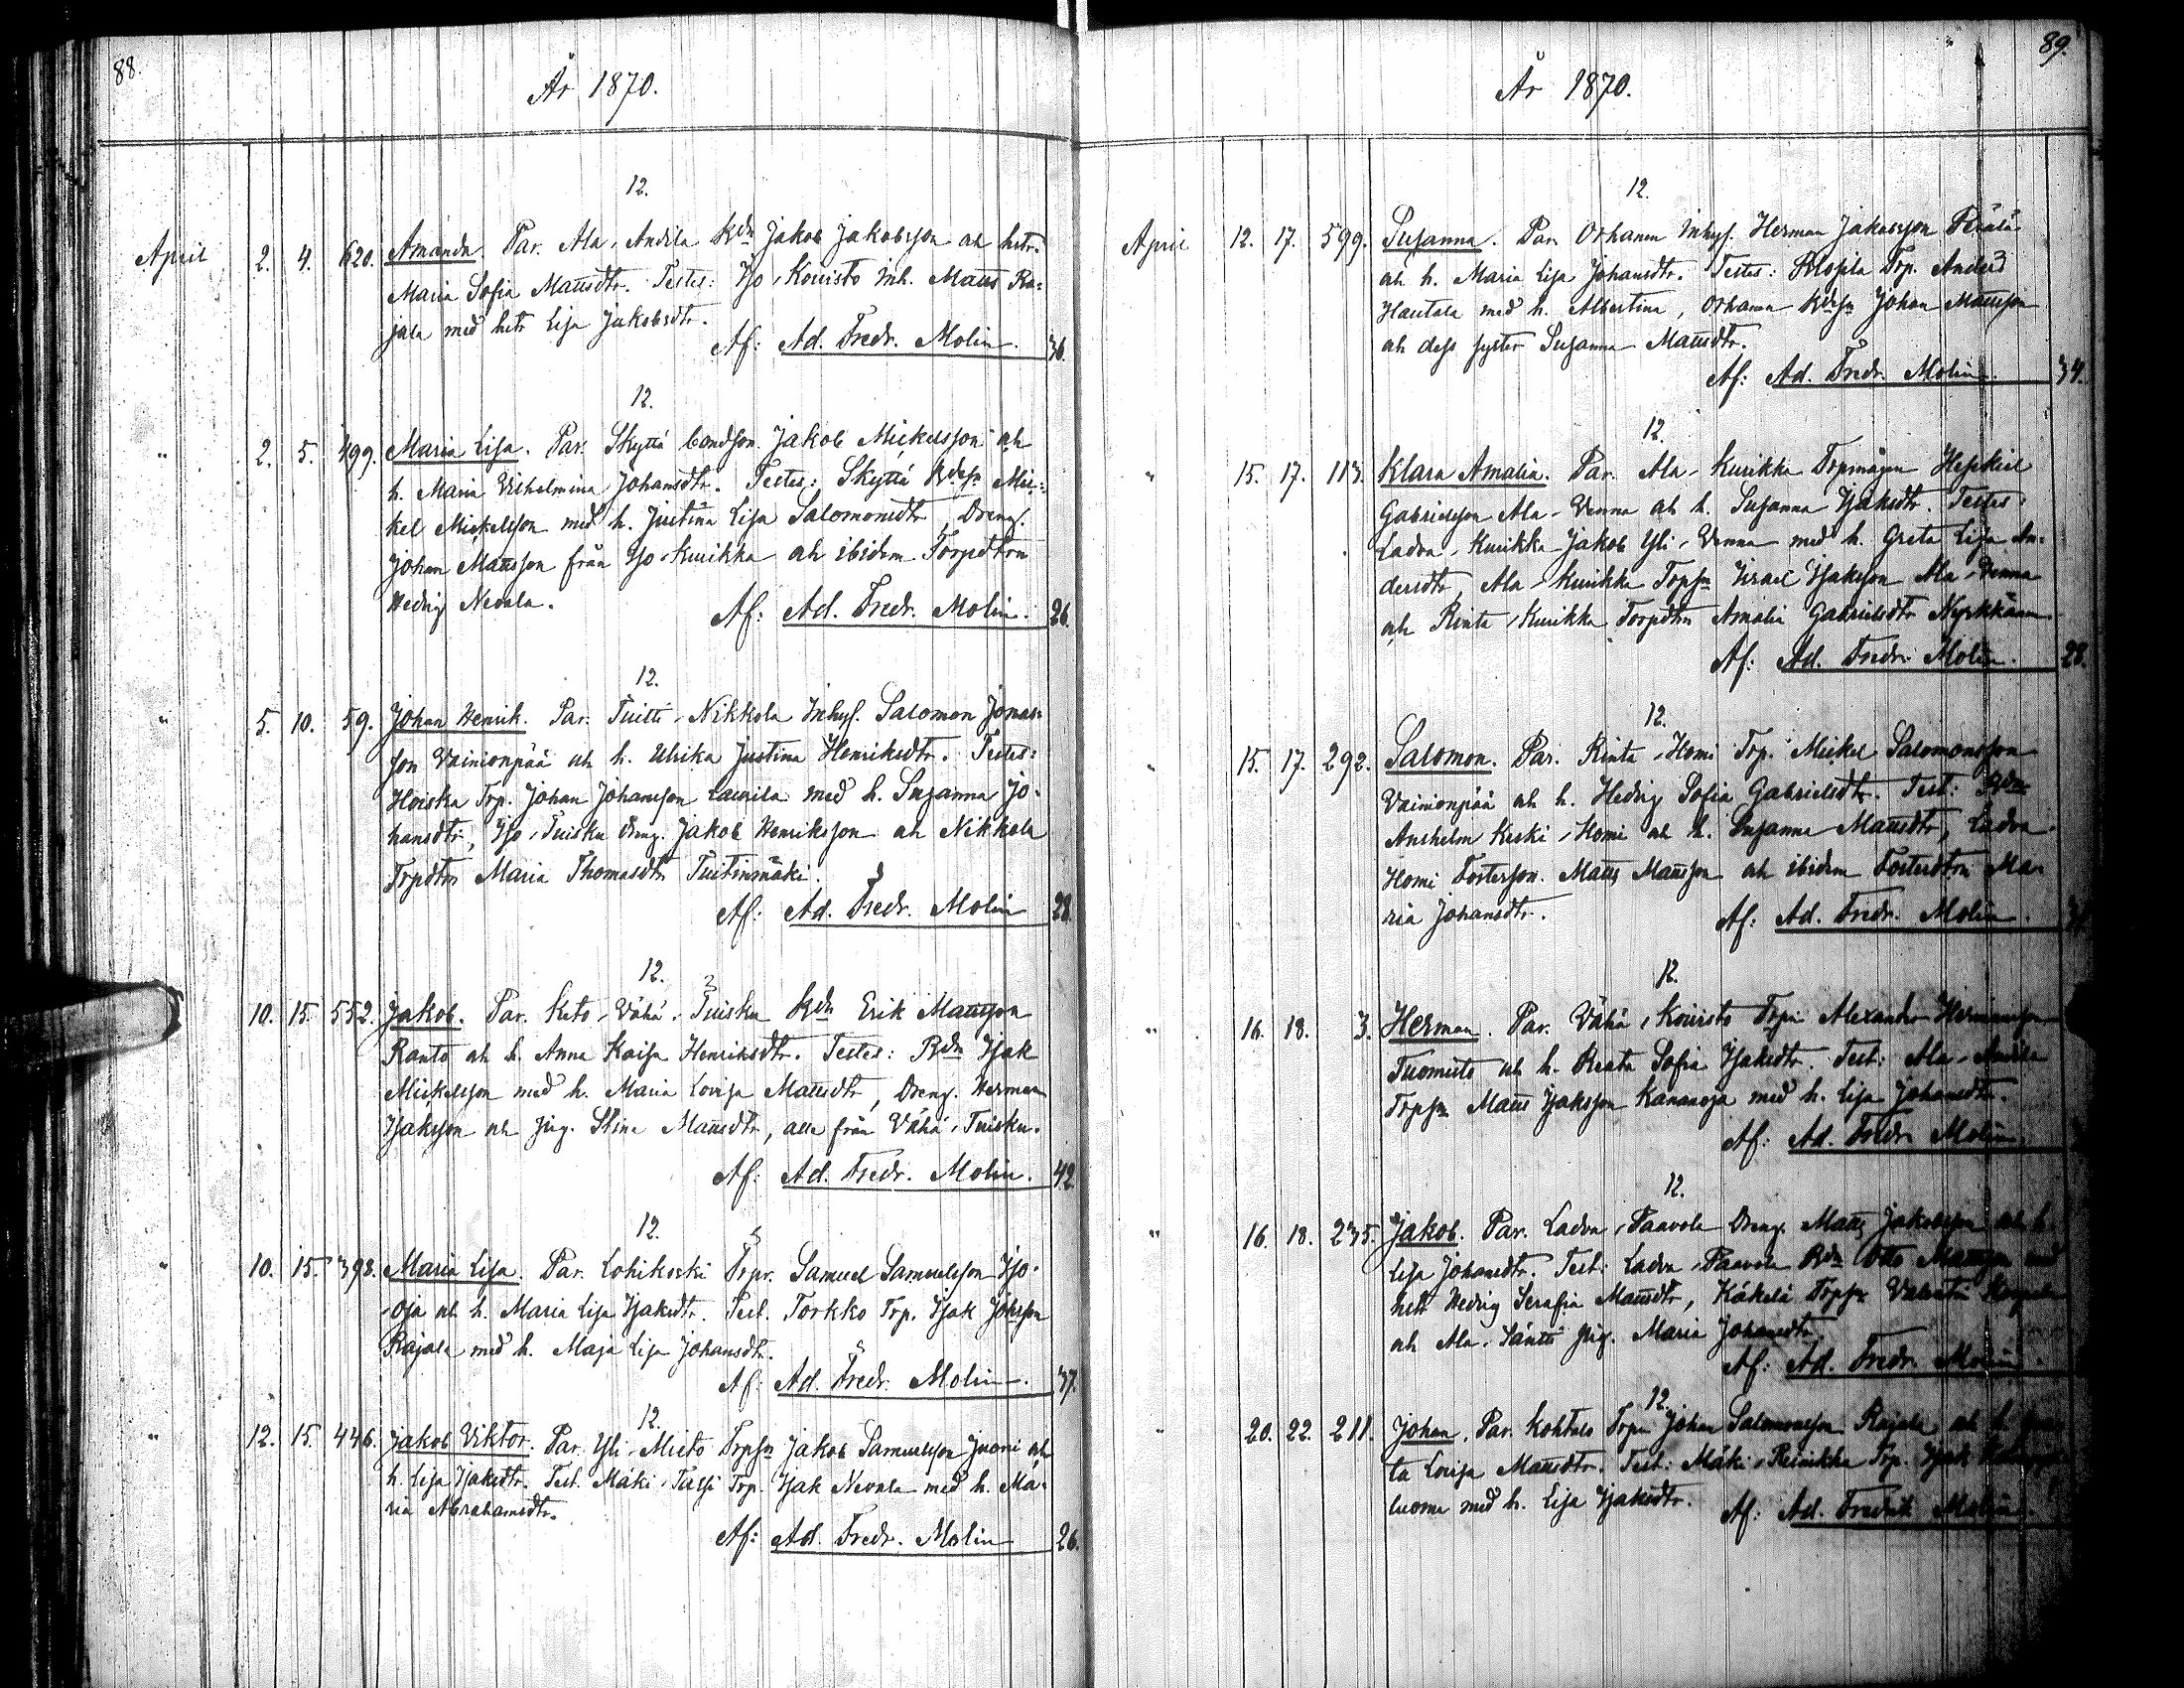 88.
År 1870.
12.
April 2. 4. 620. Amanda. Par. Ala-Andila Bdn Jakob Jakobsson och hstr.
Maria Sofia Mattsdtr. Testes: Iso-Kouisto Inh. Matts Ra-
jala med hstr Lisa Jakobsdtr.
Af: Ad. Fredr. Molin. 36.
12.
" 2. 5. 499. Maria Lisa. Par. Skyttä bondson Jakob Mickelsson och
h. Maria Vilhelmina Johansdtr. Testes: Skyttä Bdesn Mic-
kel Mickelsson med h. Justina Lisa Salomonsdtr, Dreng.
Johan Mattsson från Iso-Kurikka och ibidem Torpdtrn
Hedvig Nevala.
Af: Ad. Fredr. Molin. 26.
12.
" 5. 10. 59. Johan Henrik. Par. Tuitti-Nikkola Inhys. Salomon Jonas-
son Vainionpää och h. Ulrika Justina Henriksdtr. Testes:
Hoiska Trp. Johan Johansson Laurila med h. Susanna Jo-
hansdtr, Iso-Tuisku Dreng. Jakob Henriksson och Nikkola
Trpdtrn Maria Thomasdtr Tuitinmäki.
Af: Ad. Fredr. Molin 28.
12.
10. 15. 552. Jakob. Par. Keto-Vähä-Tuisku Bdn Erik Mattsson
Ranto och h. Anna Kaisa Henriksdtr. Testes: Bdn Isak
Mickelsson med h. Maria Lovisa Mattsdtr, Dreng. Herman
Isaksson och pig. Stina Mattsdtr, alla från Vähä-Tuisku.
Af: Ad. Fredr. Molin. 42.
12.
" 10. 15. 398. Maria Lisa. Par. Lohikoski Trpr. Samuel Samuelsson Iso-
oja och h. Maria Lisa Isaksdtr. Test. Torkko Trp. Isak Johsson
Rajala med h. Maja Lisa Johansdtr.
Af: Ad. Fredr. Molin. 37.
12.
" 12. 15. 446. Jakob Viktor. Par. Yli-Mieto Trpsn Jakob Samuelsson Juoni och
h. Lisa Isaksdtr. Test. Mäki-Passi Trp. Isak Nevala med h. Ma-
ria Abrahamsdtr.
Af: Ad. Fredr. Molin 26.
89.
År 1870.
12.
April 12. 17. 599. Susanna. Par. Orhanen Inhys. Herman Jakobsson Perälä
och h. Maria Lisa Johansdtr. Testes: Klosila Trp. Anders
Hautala med h. Albertina, Orhanen Bdesn Johan Mattsson
och dess syster Susanna Mattsdtr.
Af: Ad. Fredr. Molin. 34.
12.
" 15. 17. 113. Klara Amalia. Par. Ala-Kurikka Torpmågen Heskiel
Gabrielsson Ala-Venna och h. Susanna Isaksdtr. Testes:
Ladva-Kurikka Jakob Yli-Venna med h. Greta Lisa An-
dersdtr, Ala-Kurikka Torpsn Israel Isaksson Ala-Venna
och Rinta-Kurikka Torpdtrn Amalia Gabrielsdtr Nyrkkänen.
Af: Ad. Fredr. Molin. 28.
12.
" 15. 17. 292. Salomon. Par. Rinta-Homi Trp. Mickel Salomonsson
Vainionpää och h. Hedvig Sofia Gabrielsdtr. Test: Bdn
Anshelm Keski-Homi och h. Susanna Mattsdtr, Ladva-
Homi Fosterson. Matts Mattsson och ibidem Fosterdtrn Ma-
ria Johansdtr.
Af: Ad. Fredr. Molin.
12.
" 16. 18. 3. Herman. Par. Vähä-Kouisto Trpr. Alexander Hermansson
Tuomisto och h. Beata Sofia Isaksdtr. Test: Ala-Andila
Trpsn Matts Isaksson Kananoja med h. Lisa Johansdtr.
Af: Ad. Fredr. Molin.
12.
" 16. 18. 235. Jakob. Par. Ladva-Paavola Dreng. Matts Jakobsson och h.
Lisa Johansdtr. Test: Ladva-Paavola Bdn Otto Mattsson med
hstr Hedvig Serafia Mattsdtr, Käkelä Trpsn Valentin
och Ala-Säntti pig. Maria Johansdtr.
Af: Ad. Fredr. Molin.
12.
" 20. 22. 211. Johan. Par. Kohtala Trpr. Johan Salomonsson Rajala och h.
ta Lovisa Mattsdtr. Test: Mäki-Reinikka Trp. Isak
luoma med h. Lisa Isaksdtr.
Af: Ad. Fredrik Molin.